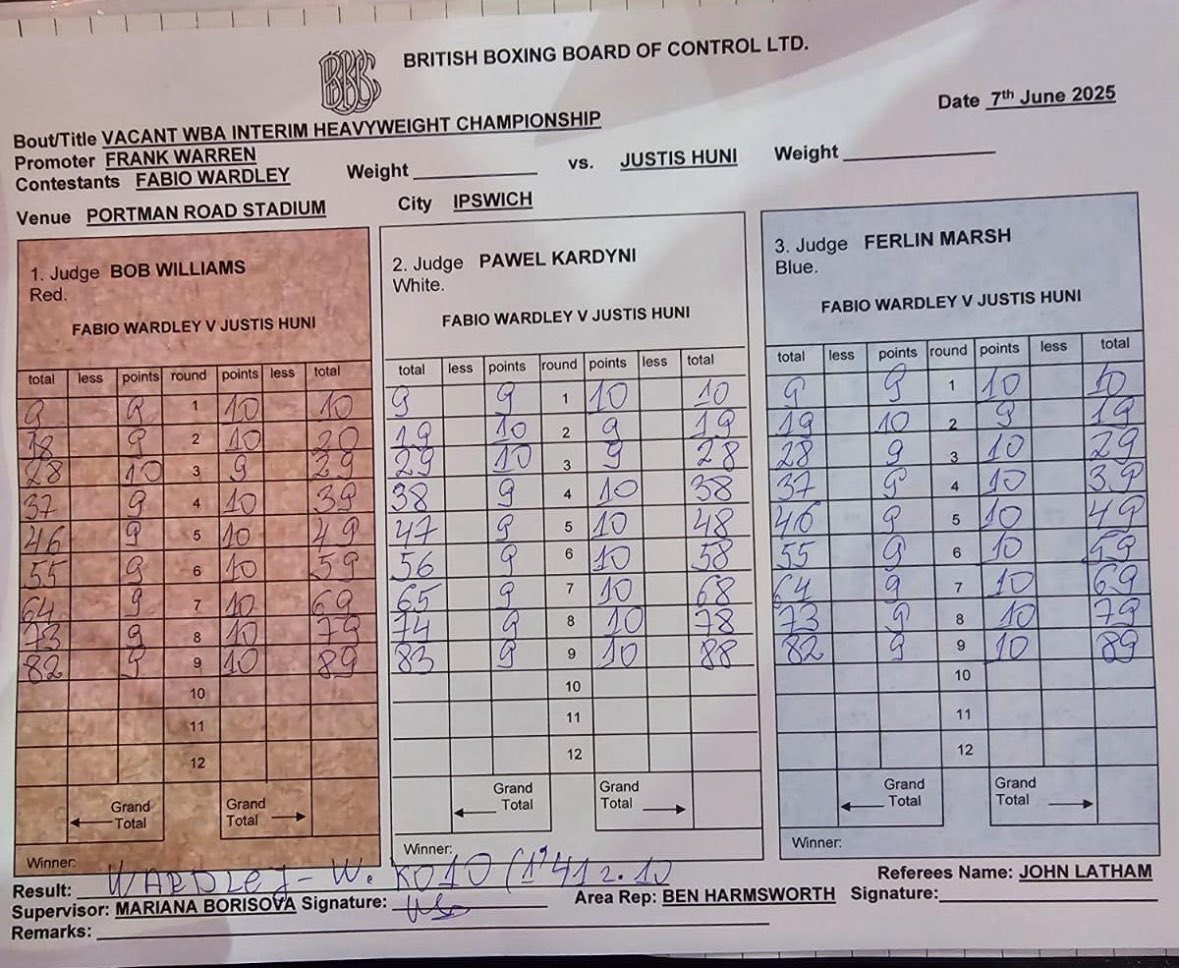 BBBC
BRITISH BOXING BOARD OF CONTROL LTD.
Date 7th June 2025
Bout/Title VACANT WBA INTERIM HEAVYWEIGHT CHAMPIONSHIP
Promoter FRANK WARREN
Contestants FABIO WARDLEY Weight vs. JUSTIS HUNI Weight
Venue PORTMAN ROAD STADIUM City IPSWICH
1. Judge BOB WILLIAMS
Red.
FABIO WARDLEY V JUSTIS HUNI
total less points round points less total
9 9 1 10 10
18 9 2 10 20
28 10 3 9 29
37 9 4 10 39
46 9 5 10 49
55 9 6 10 59
64 9 7 10 69
73 9 8 10 79
82 9 9 10 89
10
11
12
Grand Total Grand Total
Winner:
2. Judge PAWEL KARDYNI
White.
FABIO WARDLEY V JUSTIS HUNI
total less points round points less total
9 9 1 10 10
19 10 2 9 19
29 10 3 9 28
38 9 4 10 38
47 9 5 10 48
56 9 6 10 58
65 9 7 10 68
74 9 8 10 78
83 9 9 10 88
10
11
12
Grand Total Grand Total
Winner:
3. Judge FERLIN MARSH
Blue.
FABIO WARDLEY V JUSTIS HUNI
total less points round points less total
9 9 1 10 10
19 10 2 9 19
28 9 3 10 29
37 9 4 10 39
46 9 5 10 49
55 9 6 10 59
64 9 7 10 69
73 9 8 10 79
82 9 9 10 89
10
11
12
Grand Total Grand Total
Winner:
Result: WARDLEY - W. KO10 (1'41 r.10
Referees Name: JOHN LATHAM
Supervisor: MARIANA BORISOVA Signature: Area Rep: BEN HARMSWORTH Signature:
Remarks: